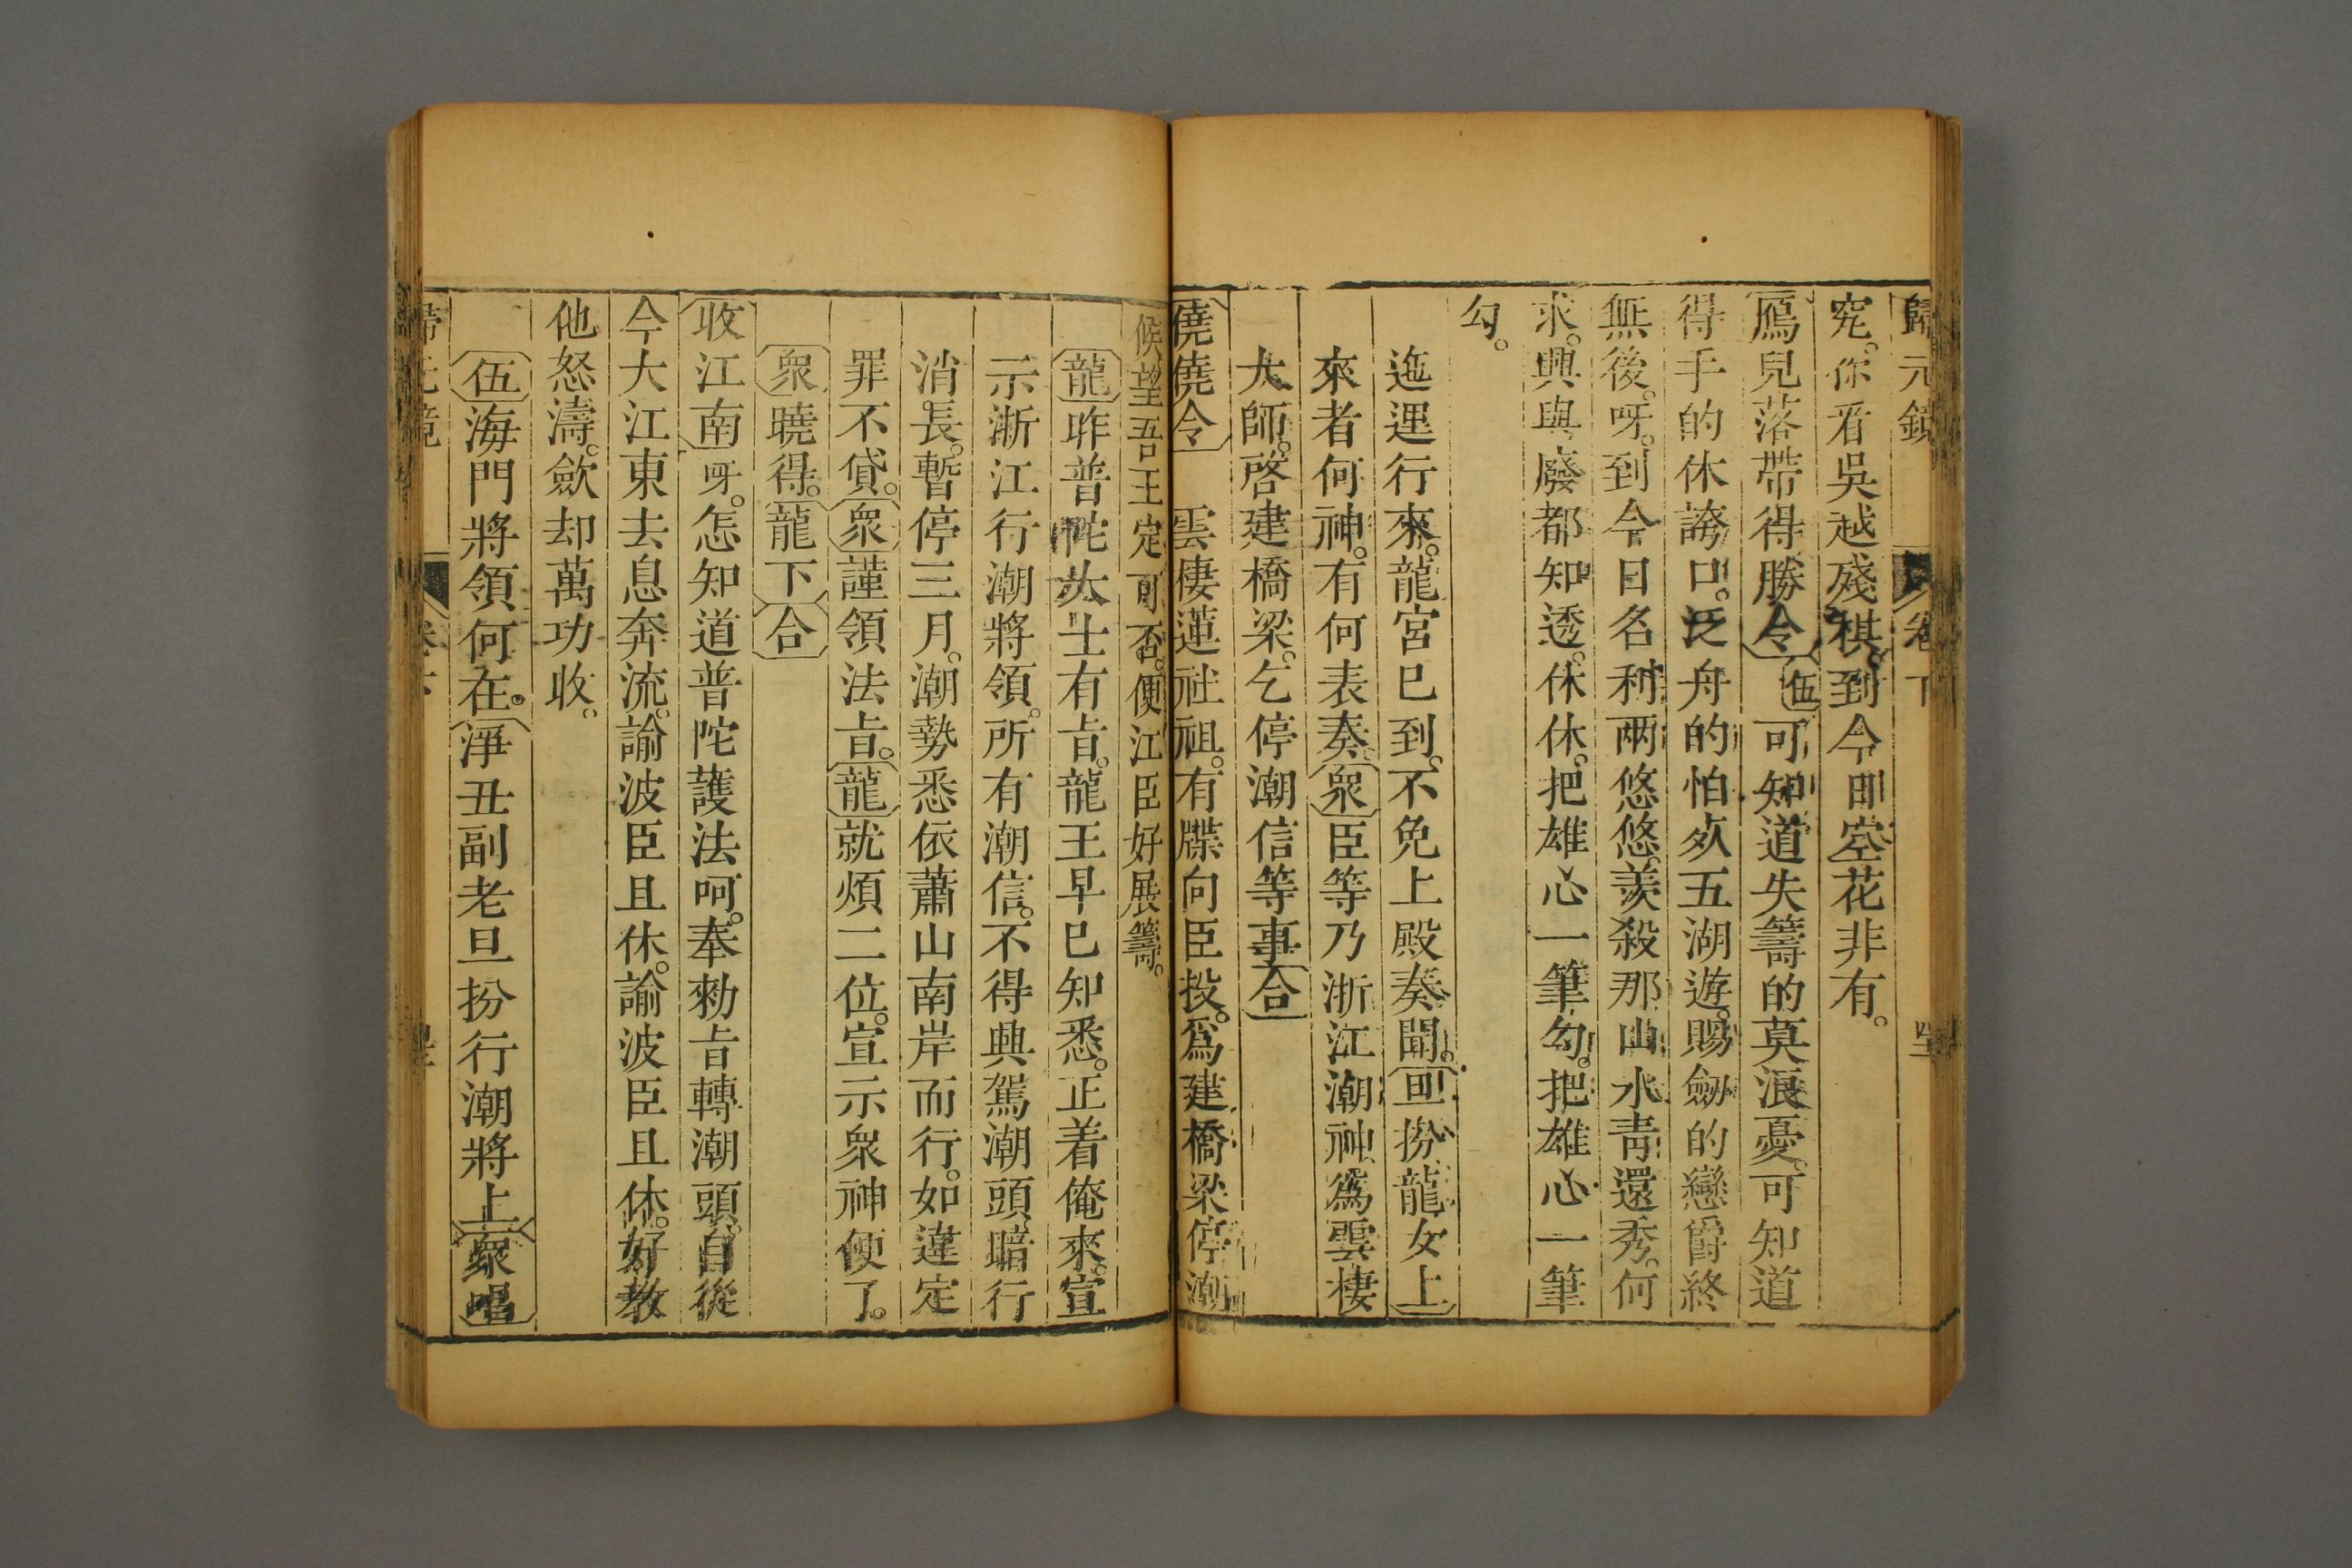 歸元鏡 卷下
究。你看吳越殘棋。到今日空花非有。
鴈兒落帶得勝令 伍 可知道失籌的莫浪憂。可知道
得手的休誇口。泛舟的怕飲五湖遊。賜劒的戀爵終
無後。呀。到今日名利兩悠悠。羨殺那山水青還秀。何
求。興與廢都知透。休休。把雄心一筆勾。把雄心一筆
勾。
迤逞行來。龍宮已到。不免上殿奏聞。 扮龍女上
來者何神。有何表奏。 衆 臣等乃浙江潮神。爲雲棲
大師。啓建橋梁。乞停潮信等事 合
僥僥令 雲棲蓮社祖。有牒向臣投。爲建橋梁停潮
候。望吾王定可否。便江臣好展籌。
龍 昨普陀大士有旨。龍王早已知悉。正着俺來。宣
示浙江行潮將領。所有潮信。不得興駕潮頭。暗行
消長。暫停三月。潮勢悉依蕭山南岸而行。如違定
罪不貸。 衆 謹領法旨。 龍 就煩二位。宣示衆神便了。
衆 曉得。 龍下 合
收江南 呀。怎知道普陀護法呵。奉勅旨轉潮頭。自從
今大江東去息奔流。諭波臣且休。諭波臣且休。好教
他怒濤。歛却萬功收。
伍 海門將領何在。 淨丑副老旦扮行潮將上 衆唱